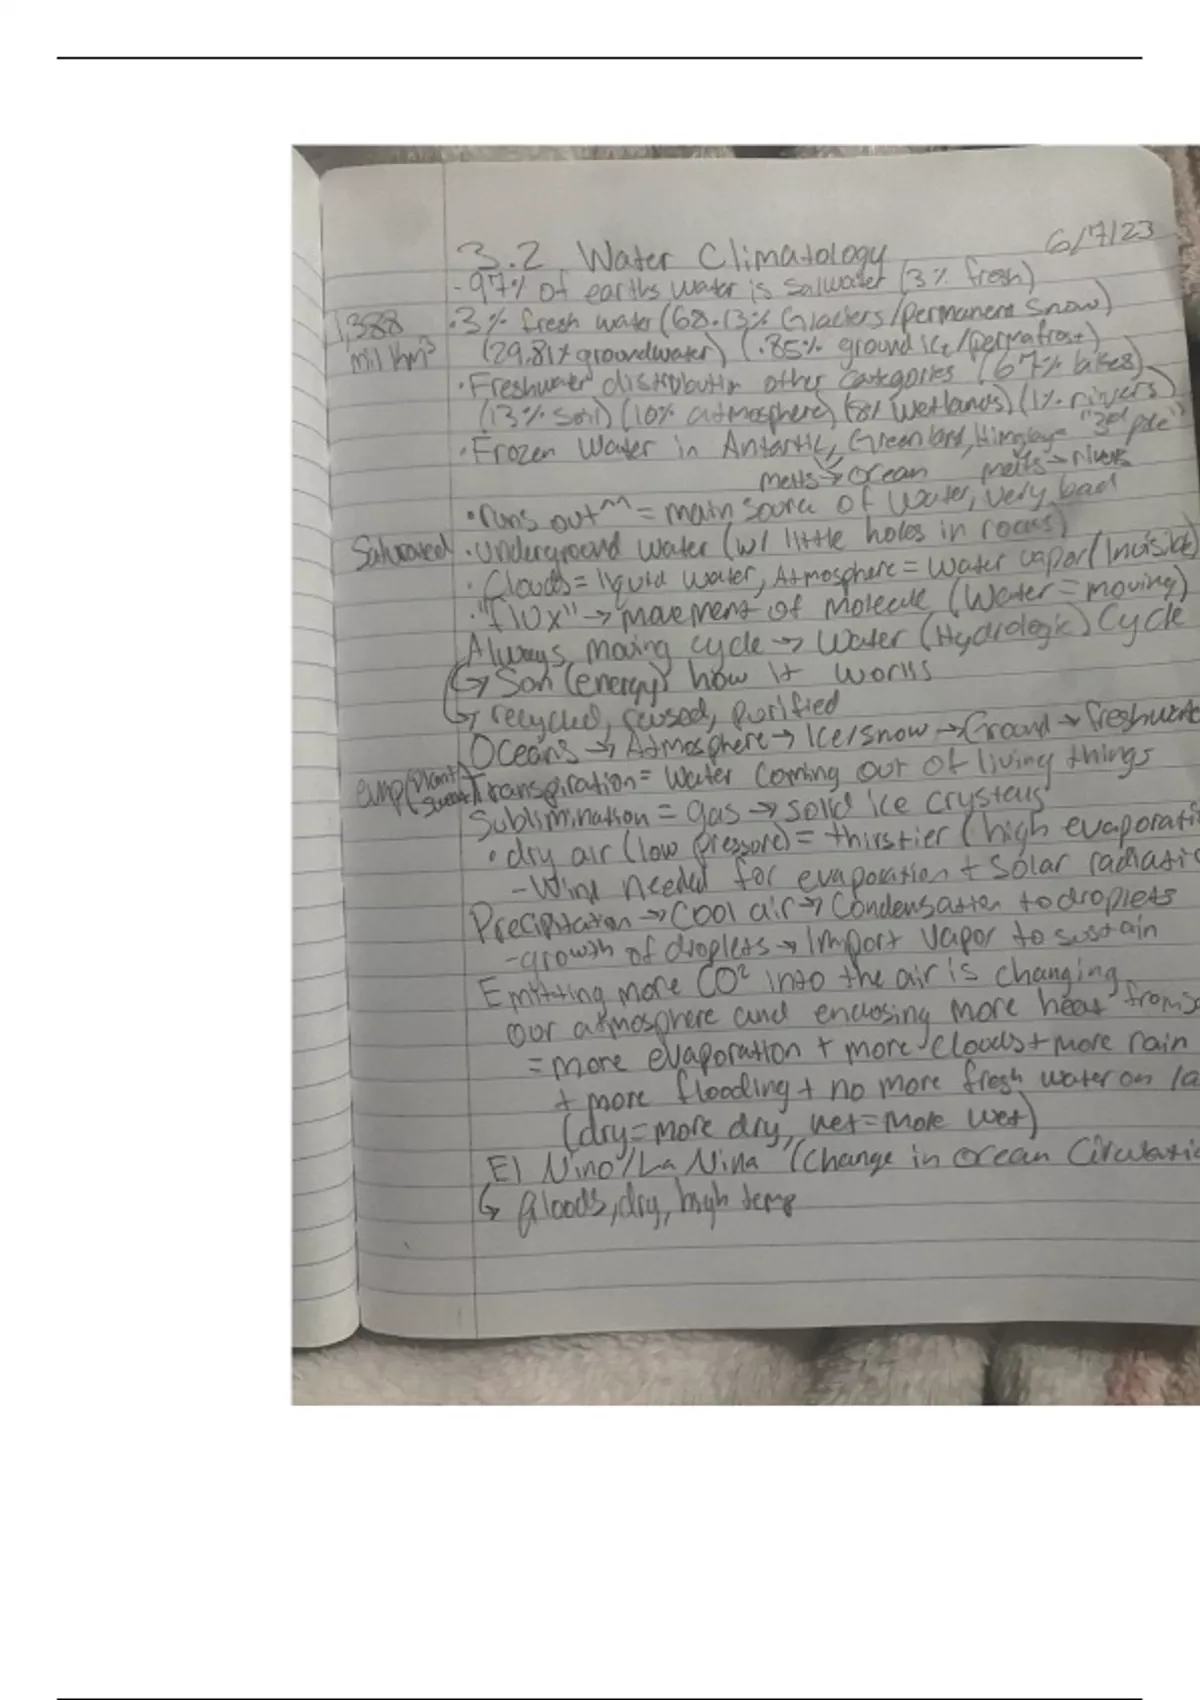 6/7/23
3.2 Water Climatology
- 97% of earths water is Salwater (3% fresh)
1,388 mil km³
• 3% fresh water (68.13% Glaciers/permanent Snow)
(29.81% groundwater) (.85% ground ice/permafrost)
• Freshwater distribution other categories (67% lakes)
(13% soil) (10% atmosphere) (8% wetlands) (1% rivers)
• Frozen Water in Antartic, Greenland, Himalaya "3rd pole"
melts → ocean melts → rivers
• runs out ^^ = main source of water, very bad
Saturated • Underground water (w/ little holes in rocks)
• Clouds = liquid water, Atmosphere = water vapor (Invisible)
• "flux" → movement of molecule (Water = moving)
Always moving cycle → Water (Hydrologic) Cycle
↳ Son (energy) how it works
↳ recycled, reused, purified
Oceans → Atmosphere → Ice/snow → Ground → freshwate
evap (plant sweat) Transpiration = Water coming out of living things
Sublimination = gas → solid ice crystals
• dry air (low pressure) = thirstier (high evaporati
- Wind needed for evaporation + solar radiatio
Precipitation → Cool air → Condensation to droplets
- growth of droplets → Import vapor to sustain
Emitting more CO² into the air is changing
our atmosphere and enclosing more heat from s
= more evaporation + more clouds + more rain
+ more flooding + no more fresh water on la
(dry = more dry, wet = more wet)
El Nino/La Nina (Change in ocean Circulatio
↳ floods, dry, high temp